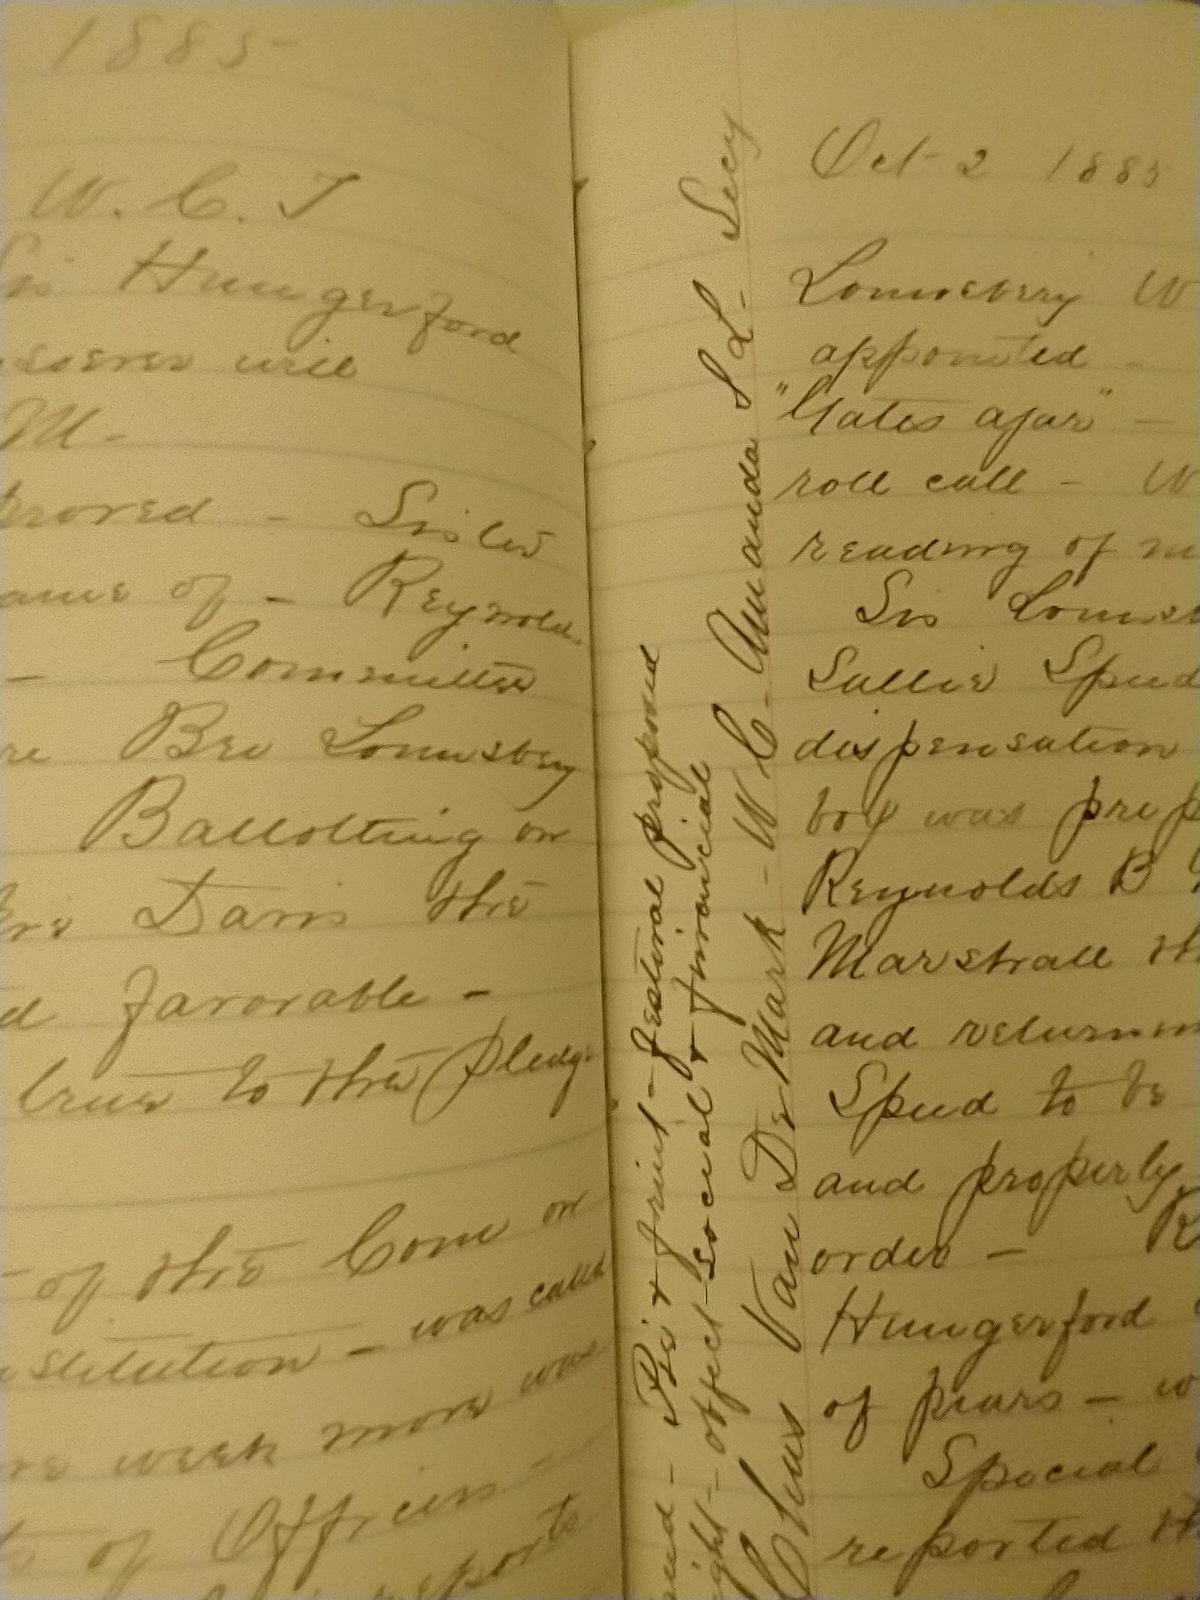 1885
W. C. T
Sis Hungerford
will
M-
proved - Sister
name of - Reynolds
- Committee
Bro Lounsbery
Ballotting on
Bro Davis the
favorable -
true to the Pledge
- of the Com on
- was called
week more was
of Officers -
reports
Pie & fruit - festival proposed
- object - social & financial
Chas Van De Mark - W C - Amanda S L - Secy
Oct 2 1885
Lounsbery W
appointed -
"Gates ajar" -
roll call - W
reading of m
Sis Lounsb
Sallie Speed
dispensation
boy was prep
Reynolds B
Marshall th
and returnin
Speed to be
and properly
order - R
Hungerford
of pears - w
Special
reported th